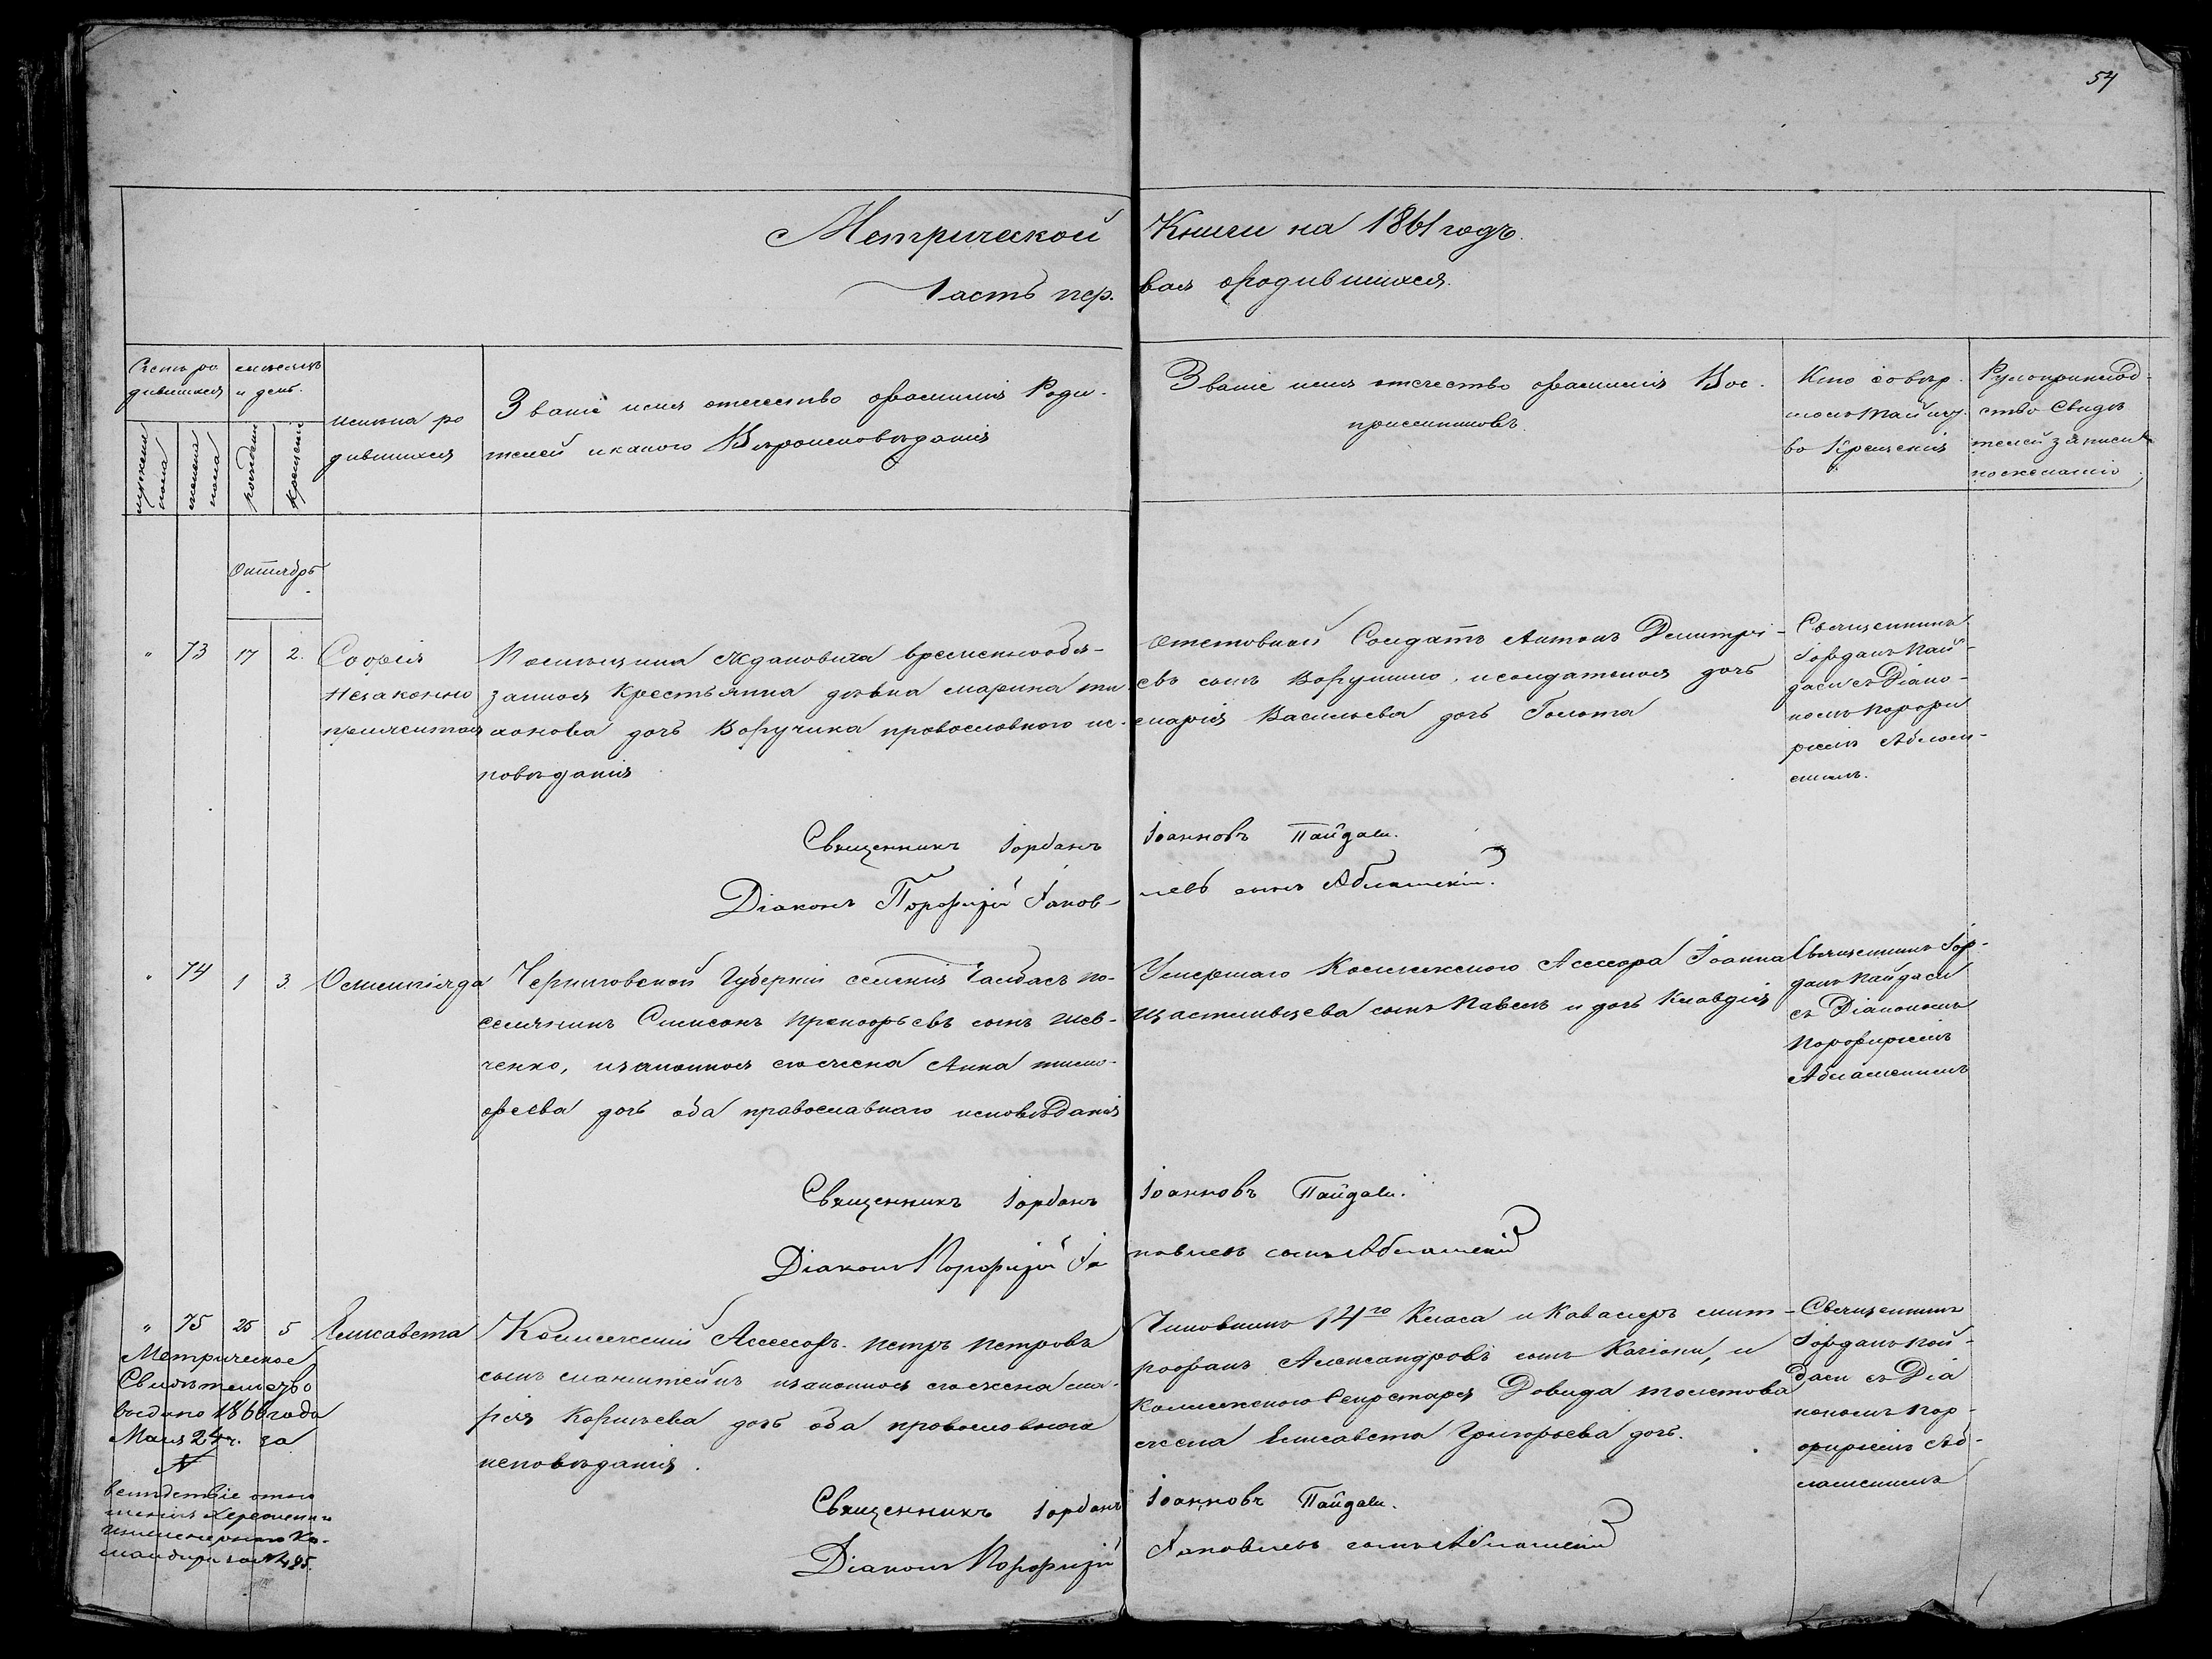 54
Метрической Книги на 1861 годъ.
Часть пер. вая о родившихся.
Счетъ ро дившихся
мѣсяцъ и день.
мужеска пола
женска пола
рожденія
крещенія
имена ро дившихся
Званіе имя отчество фамилія Роди-
телей и какого Вѣроисповѣданія
Званіе имя отчество фамилія Вос-
пріемниковъ.
Кто совер.
шалъ Таинст.
во Крещенія
Рукоприклад-
ство Свидѣ
телей записи
по желанію
Октябрь
" 73 17 2. Софія
Незаконно
прижитая
Помѣщика Ждановича временнообя-
занная Крестьянка дѣвка Марина ти
хонова дочь Воручика провославного ис-
повѣданія
Отставной Солдатъ Антонъ Димитрі-
евъ сынъ , исолдатская дочь
Марія Васильева дочь Голота
Священникъ
Іорданъ Пай-
даси съ Діако-
номъ Порфи
ріемъ Аблам-
скимъ.
Священникъ Іорданъ Іоанновъ Пайдаси.
Діаконъ Порфирій Іаков- левъ сынъ Абламскій.
" 74 1 3. Олимпіяда
Черниговской Губерніи селенія по-
селянинъ Симеонъ Прокофьевъ сынъ Шев-
ченко, изаконная его жена Анна тимо-
феева дочь оба православнаго исповѣданія
Умершаго Коллежскаго Асесора Іоанна
Щастливцева сынъ Павелъ и дочь Клавдія
Священникъ Іор-
данъ Пайдаси
съ Діакономъ
Порфиріемъ
Абламскимъ
Священникъ Іорданъ Іоанновъ Пайдаси.
Діаконъ Порфирій Іа ковлевъ сынъ Абламскій
" 75 25 5 Елисавета
Коллежскій Ассесоръ. Петръ Петровъ
сынъ изаконная его жена Ма-
рія дочь оба провославного
исповѣданія.
Чиновникъ 14го Класа и Кавалеръ мит-
рофанъ Александровъ сынъ , и
Коллежскаго Секретаря Довида толстова
жена Елисавета Григорьева дочь.
Священникъ
Іорданъ Пай-
даси съ Діа
кономъ Пор-
фиріемъ Аб-
ламскимъ
Метрическое
Свидѣтельство
выдано 1866 года
Мая 24 ч. за
N
вслѣдствіе отно
шенія Херсонскаго
инженернаго Ко-
мандира за N 485.
Священникъ Іорданъ Іоанновъ Пайдаси.
Діаконъ Порфирій Іаковлевъ сынъ Абламскій